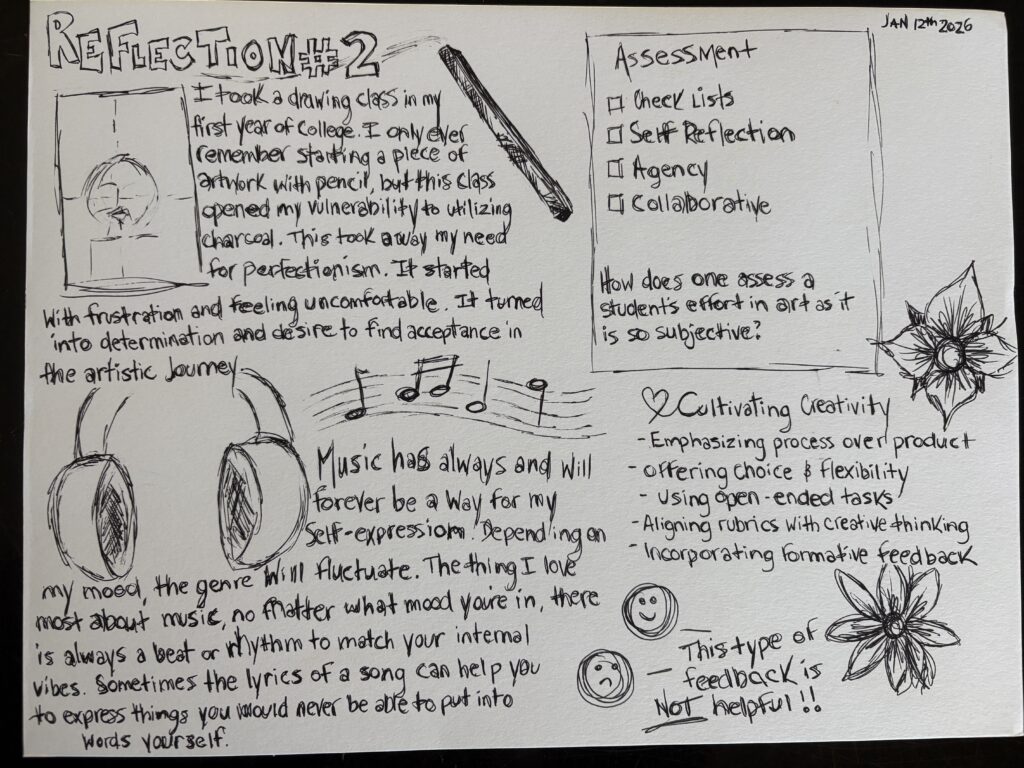 REFLECTION #2
JAN 12th 2026
I took a drawing class in my
first year of college. I only ever
remember starting a piece of
artwork with pencil, but this class
opened my vulnerability to utilizing
charcoal. This took away my need
for perfectionism. It started
with frustration and feeling uncomfortable. It turned
into determination and desire to find acceptance in
the artistic Journey
Assessment
Check Lists
Self Reflection
Agency
Collaborative
How does one assess a
student's effort in art as it
is so subjective?
Music has always and will
forever be a way for my
Self-expression. Depending on
my mood, the genre will fluctuate. The thing I love
most about music, no matter what mood you're in, there
is always a beat or rhythm to match your internal
vibes. Sometimes the lyrics of a song can help you
to express things you would never be able to put into
words yourself.
♡ Cultivating Creativity
- Emphasizing process over product
- Offering choice & flexibility
- Using open-ended tasks
- Aligning rubrics with creative thinking
- Incorporating formative feedback
This type of
feedback is
NOT helpful!!